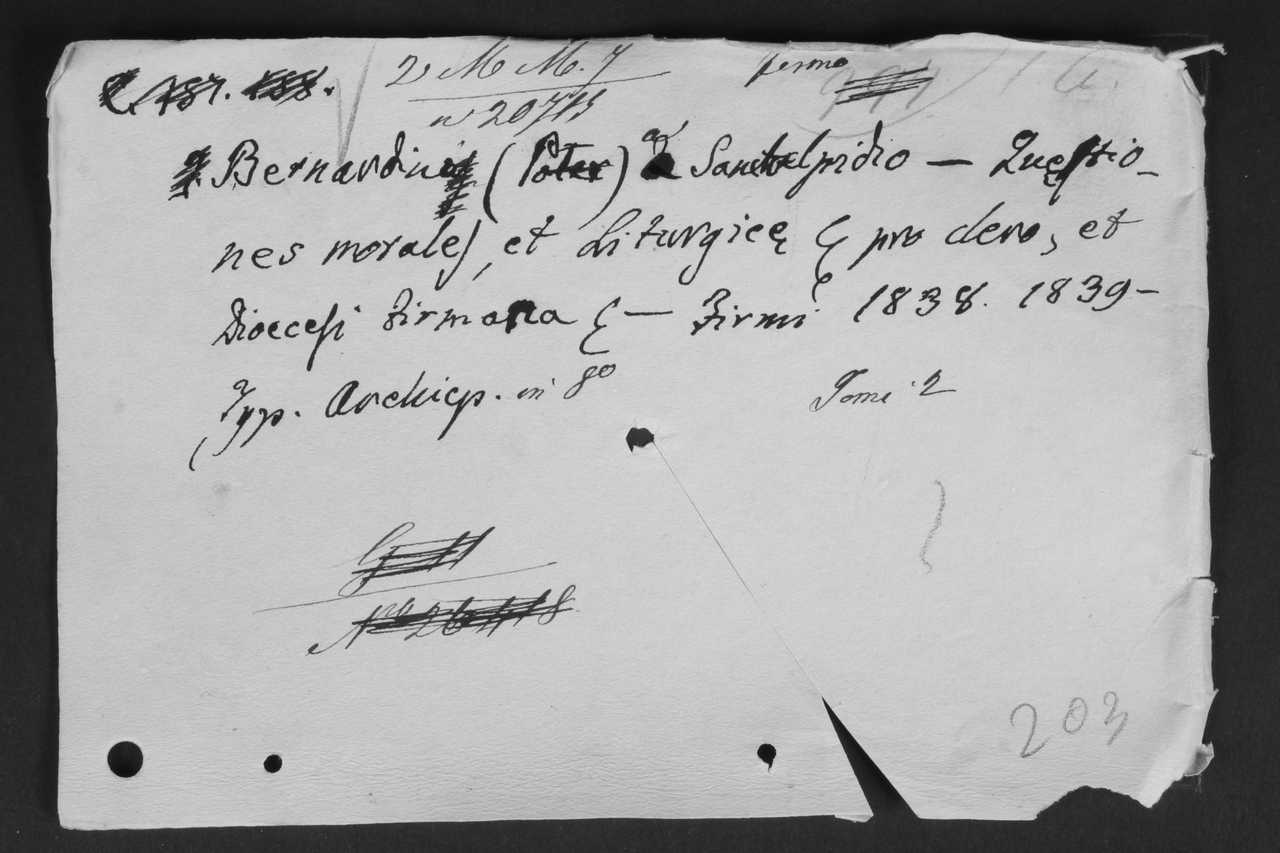 2, M M. 7 fermo
nº 20715
Bernardinus (Pater) a Sanctelpidio — Quęstio-
nes morales, et Liturgicę & pro clero, et
Diocesi Firmana & — Firmi 1838. 1839 –
Typ. Archiep. in 8º Tomi 2
203